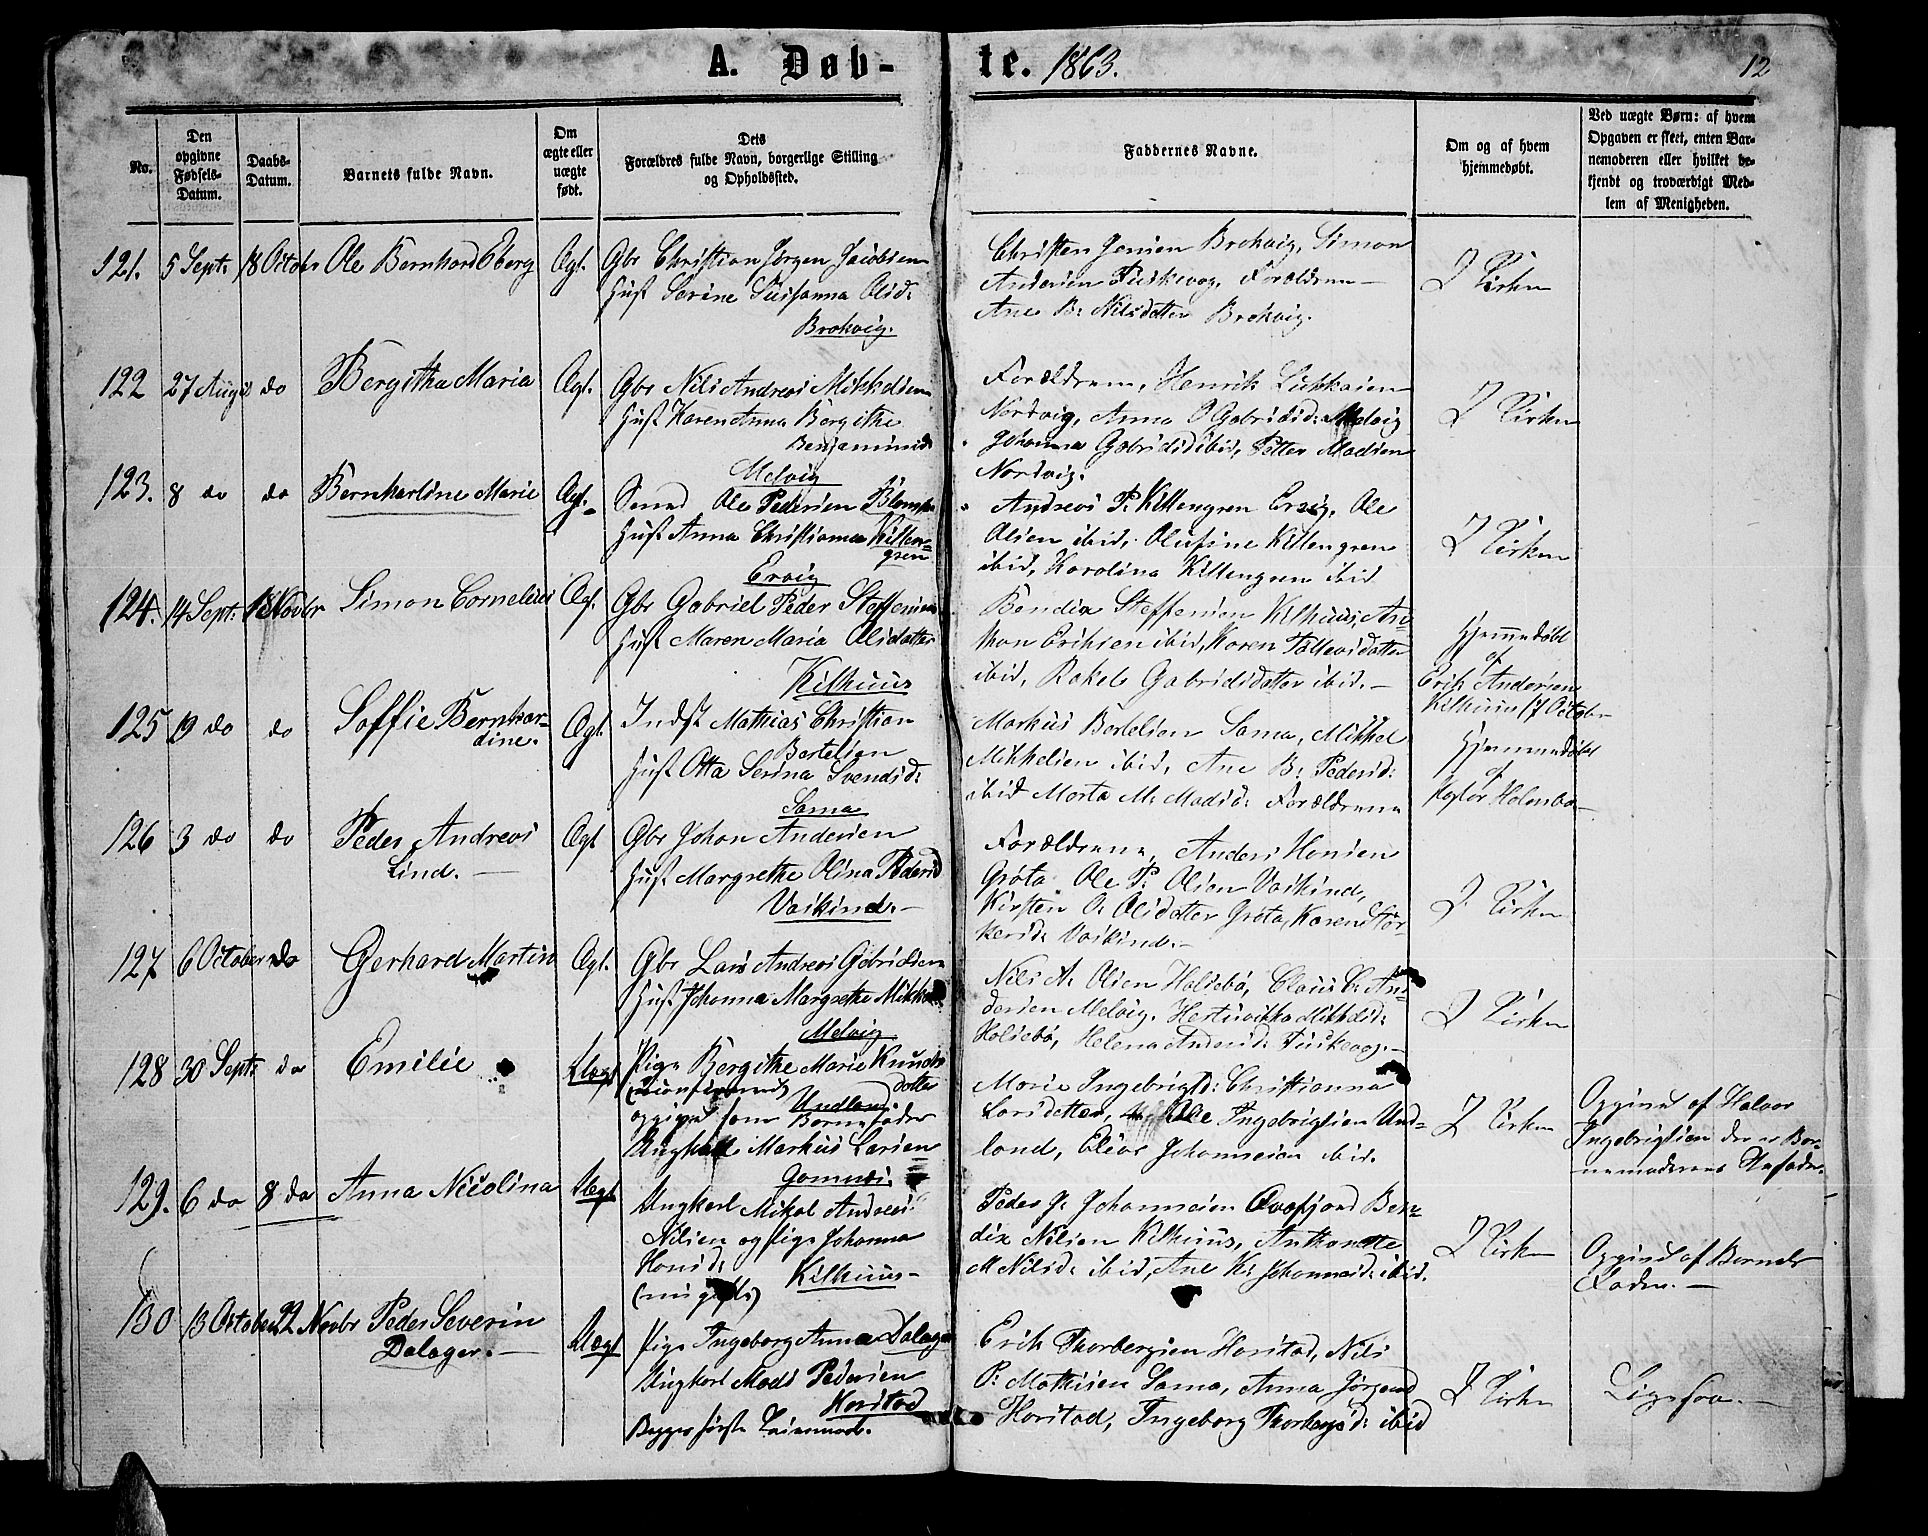 A. Døb-
te. 1863.
12
No.
Den
opgivne
Fødsels-
Datum.
Daabs-
Datum.
Barnets fulde Navn.
Om
ægte eller
uægte
født.
Dets
Forældres fulde Navn, borgerlige Stilling
og Opholdssted.
Faddernes Navne.
Om og af hvem
hjemmedøbt.
Ved uægte Børn: af hvem
Opgaven er skeet, enten Bar-
nemoderen eller hvilket be-
kjendt og troværdigt Med-
lem af Menigheden.
121. 5 Sept: 18 Octobr Ole Bernhard Eberg Ægt.
Gbr Christian Jørgen Jacobsen
Hust Serine Susanna Olsd:
Brokvig.
Christen Jensen Brokvig, Simon
Andersen Fuskevog, Forældrene
Ane B: Nilsdatter Brokvig.
I Kirken
122 27 August do Bergitha Maria Ægt.
Gbr Nils Andreas Mikkelsen
Hust Karen Anna Bergithe
Benjaminsd:
Melvig
Forældrene, Henrik Lukkasen
Nordvig, Anna O Gabrielsd: Melvig
Johanna Gabrielsd ibid, Petter Madsen
Nordvig.
I Kirken
123. 8 do do Bernhardine Marie Ægt.
Ole Pedersen
Hust Anna Christianna Killen-
gren
Ervig
Andreas P. Killengren Ervig, Ole
Olsen ibid, Olufine Killengren
ibid, Karolina Killengren ibid
I Kirken
124. 14 Sept: Novbr Simon Cornelius Ægt.
Gbr Gabriel Peder Steffensen
Hust Maren Maria Olsdatter
Kilhuus
Bendix Steffensen Kilhuus, An-
thon Eriksen ibid, Karen Tollevsdatter
ibid, Rakel Gabrielsdatter ibid.
Hjemmedøbt
af
Erik Andersen
Kilhuus 17 October
125 19 do do Soffie Bernhar-
dine. Ægt.
Indst Mathias Christian
Bertelsen
Hust Otta Serina Svendsd:
Sama
Markus Bertelsen Sama, Mikkel
Mikkelsen ibid, Ane B: Pedersd:
ibid Marta M: Madsd: Forældrene
Hjemmedøbt
af
Holmbo
126 3 do do Peder Andreas
Lind. Ægt
Gbr Johan Andersen
Hust Margrethe Olina Pedersd
Vaikind.
Forældrene, Anders Hansen
Grøta Ole P: Olsen Vaikind,
Kirsten O: Olsdatter Grøta, Karen
Vaikind.
I Kirken
127 6 October do Gerhard Martin Ægt.
Gbr Lars Andreas Gabrielsen
Hust Johanna Margrethe
Melvig
Nils A: Olsen Holsebø, Claus C: An-
dersen Melvig, Mikkelsd:
Holsebø, Helena Andersd: Fuskevog.
I Kirken
128 30 Sept: do Emilie Uægt
Pige Bergithe Marie Knuds-
datter
(Konfirmeret) Undland
opgivet som Barnefader
Ungkarl Markus Larsen
Maria Ingebrigtsd: Christianna
Larsdatter, Ole Ingebrigtsen Und-
land, Elias Johannesen ibid.
I Kirken
Opgivet af Halvor
Ingebrigtsen der er Bar-
nemoderens Stifader.
129. 6 do 8 do Anna Nicolina Uægt
Ungkarl Mikal Andreas
Nilsen og Pige Johanna
Hansd:
Kilhuus
Peder J: Johannesen Øvefjord Ben-
dix Nilsen Kilhuus, Anthonette
M Nilsd: ibid, Ane K: Johannesd: ibid.
I Kirken
Opgivet af Barnets
Fader.
130 13 October 22 Novbr Peder Severin
Dalager. Uægt
Pige Ingeborg Anna Dalager
Ungkarl Mads Pedersen
Harstad
Begges første Leiermaal.
Erik Thorbergsen Harstad, Nils
P: Mathisen Sama, Anna Jørgensd
Harstad, Ingeborg Thorbergsd: ibid
I Kirken
Ligesaa.